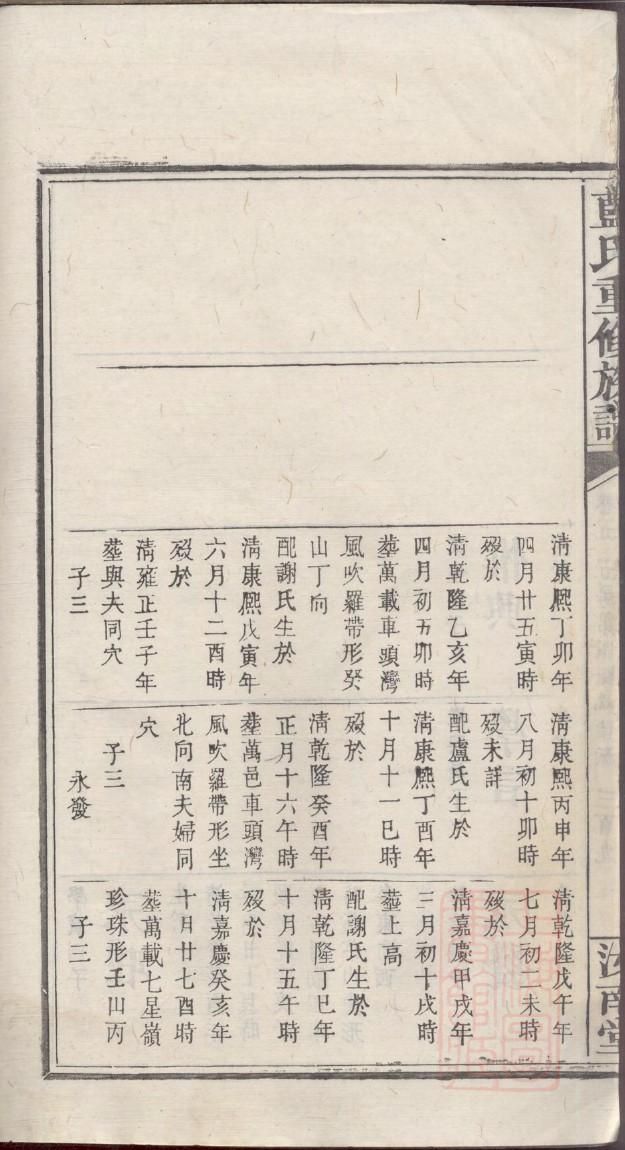 藍氏重修族譜
清康熙丁卯年
四月廿五寅時
歿於
清乾隆乙亥年
四月初五卯時
塟萬載車頭灣
風吹羅帶形癸
山丁向
配謝氏生於
清康熙戊寅年
六月十二酉時
歿於
清雍正壬子年
塟與夫同穴
子三
清康熙丙申年
八月初十卯時
歿未詳
配盧氏生於
清康熙丁酉年
十月十一巳時
歿於
清乾隆癸酉年
正月十六午時
塟萬邑車頭灣
風吹羅帶形坐
北向南夫婦同
穴
子三
永發
清乾隆戊午年
七月初二未時
歿於
清嘉慶甲戌年
三月初十戌時
塟上高
配謝氏生於
清乾隆丁巳年
十月十五午時
歿於
清嘉慶癸亥年
十月廿七酉時
塟萬載七星嶺
珍珠形壬山丙
子三
汝南堂